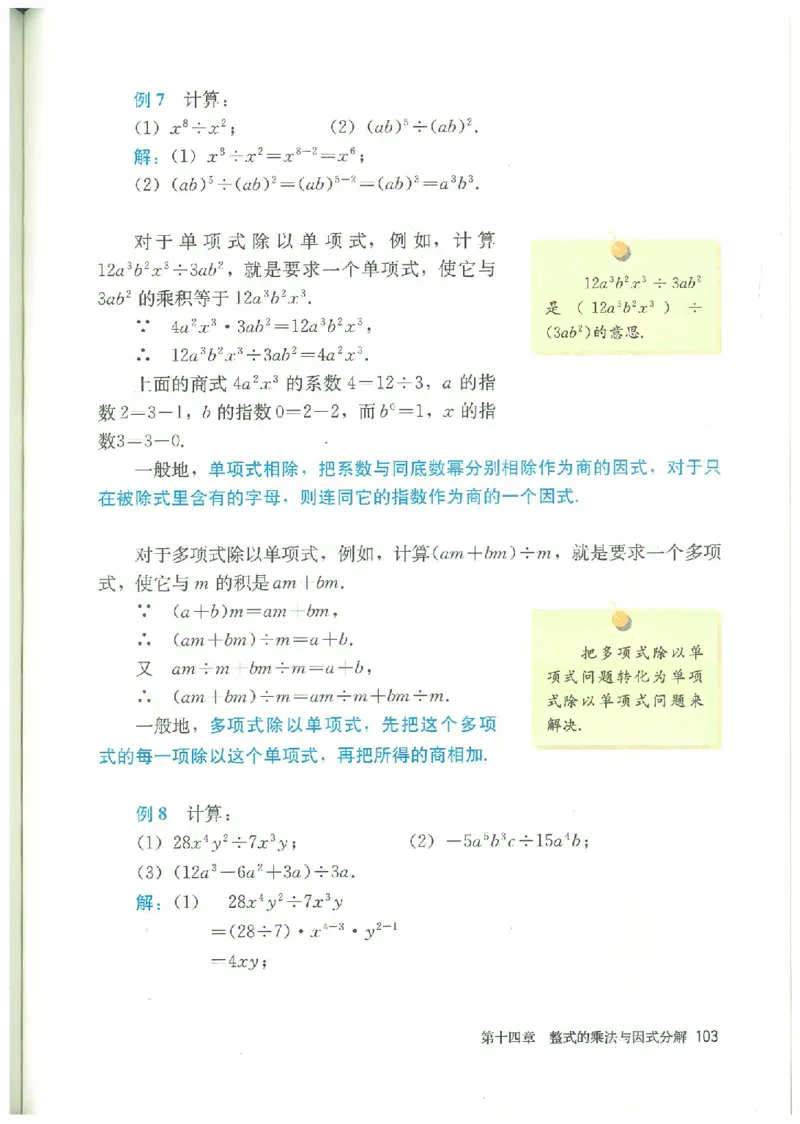 例7 计算：
(1) x⁸÷x²； (2) (ab)⁵÷(ab)².
解：(1) x⁸÷x²=x⁸⁻²=x⁶；
(2) (ab)⁵÷(ab)²=(ab)⁵⁻²=(ab)³=a³b³.
对于单项式除以单项式，例如，计算
12a³b²x³÷3ab²，就是要求一个单项式，使它与
3ab² 的乘积等于12a³b²x³.
∵ 4a²x³·3ab²=12a³b²x³，
∴ 12a³b²x³÷3ab²=4a²x³.
上面的商式 4a²x³ 的系数 4=12÷3，a 的指
数2=3-1，b 的指数0=2-2，而b⁰=1，x 的指
数3=3-0.
12a³b²x³÷3ab²
是（12a³b²x³）÷
(3ab²)的意思.
一般地，单项式相除，把系数与同底数幂分别相除作为商的因式，对于只
在被除式里含有的字母，则连同它的指数作为商的一个因式.
对于多项式除以单项式，例如，计算(am+bm)÷m，就是要求一个多项
式，使它与 m 的积是am+bm.
∵ (a+b)m=am+bm，
∴ (am+bm)÷m=a+b.
又 am÷m+bm÷m=a+b，
∴ (am+bm)÷m=am÷m+bm÷m.
一般地，多项式除以单项式，先把这个多项
式的每一项除以这个单项式，再把所得的商相加.
把多项式除以单
项式问题转化为单项
式除以单项式问题来
解决.
例8 计算：
(1) 28x⁴y²÷7x³y； (2) -5a⁵b³c÷15a⁴b；
(3) (12a³-6a²+3a)÷3a.
解：(1) 28x⁴y²÷7x³y
=(28÷7)·x⁴⁻³·y²⁻¹
=4xy；
第十四章 整式的乘法与因式分解 103